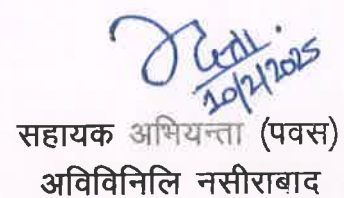 10/2/2025
सहायक अभियन्ता (पवस)
अविविनिलि नसीराबाद